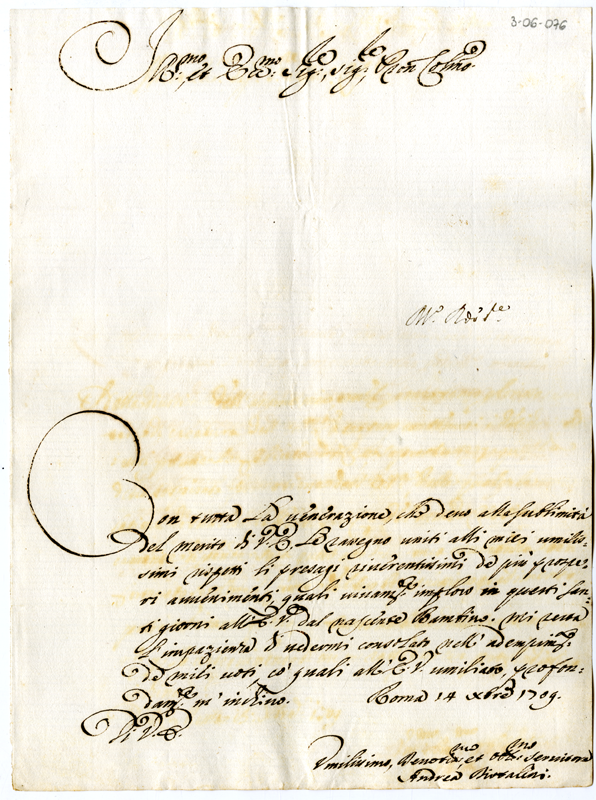 3-06-076
Ill.mo et Ecc.mo Sig.re, Sig.re P.ron Col.mo
Con tutta la venerazione, che devo alla sublimità
del merito di V.E. Le rasegno uniti alli miei umilis-
simi rispetti li presagi riverentissimi de più prospe-
ri avvenimenti, quali vivam.te imploro in questi san-
ti giorni all'E.V. dal nascente Bambino. Mi resta
l'impazienza di vedermi consolato nell'adempim.to
de miei voti, co' quali all'E.V. umiliato, profon-
dam.te m'inchino. Roma 14 Xbre 1709.
Di V.E.
Umilissimo, Devotis.mo et Obb.mo Servitore
Andrea